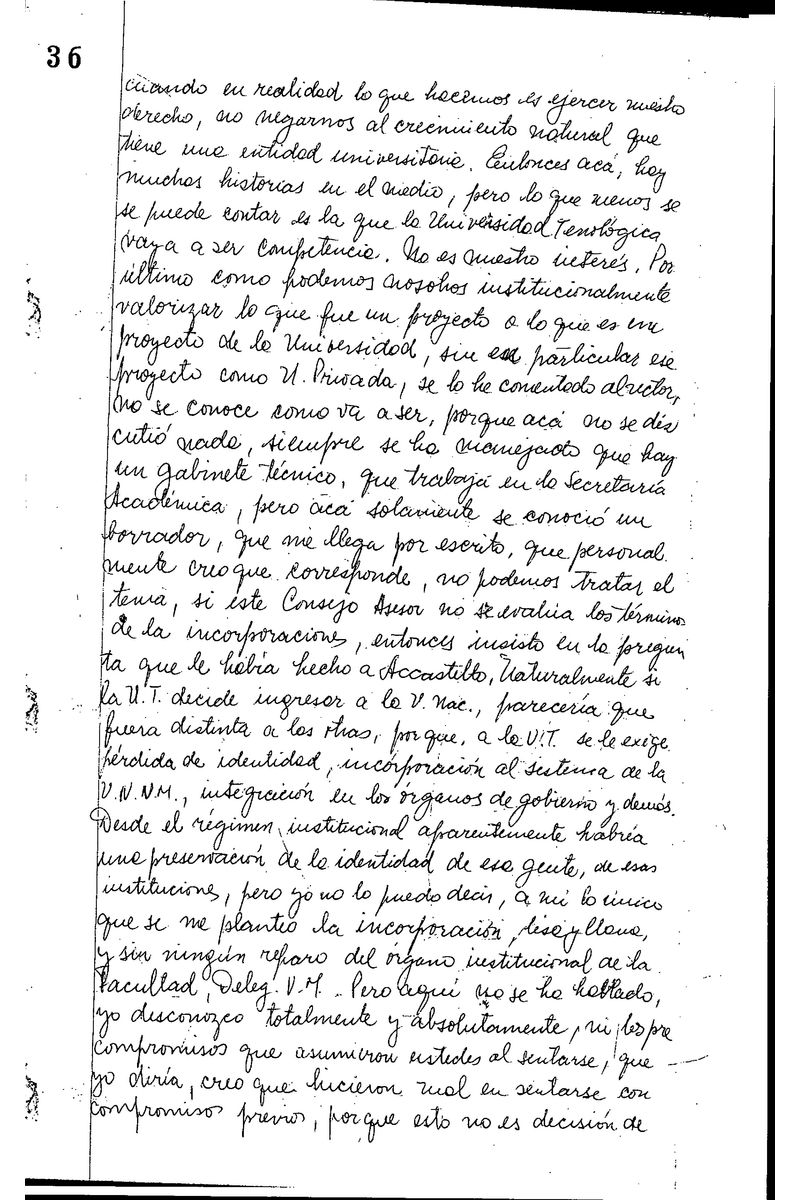 36
cuando en realidad lo que hacemos es ejercer nuestro
derecho, no negarnos al crecimiento natural que
tiene una entidad universitaria. Entonces acá, hay
muchas historias en el medio, pero lo que menos se
se puede contar es la que la Universidad Tenológica
vaya a ser competencia. No es nuestro interés. Por
último como podemos nosotros institucionalmente
valorizar lo que fue un proyecto o lo que es un
proyecto de la Universidad, sin en particular ese
proyecto como U. Privada, se lo he comentado al rector,
no se conoce como va a ser, porque acá no se dis
cutió nada, siempre se ha manejado que hay
un gabinete técnico, que trabaja en la Secretaría
Académica, pero acá solamente se conoció un
borrador, que me llega por escrito, que personal
mente creo que corresponde, no podemos tratar el
tema, si este Consejo Asesor no se evalúa los términos
de la incorporaciones, entonces insisto en la pregun
ta que le había hecho a Accastello, Naturalmente si
la U.T. decide ingresar a la V. Nac., parecería que
fuera distinta a las otras, porque, a la U.T. se le exige
pérdida de identidad, incorporación al sistema de la
U.N.V.M., integración en los órganos de gobierno y demás.
Desde el régimen institucional aparentemente habría
una preservación de la identidad de esa gente, de esas
instituciones, pero yo no lo puedo decir, a mi lo único
que se me planteo la incorporación, lisa y llana,
y sin ningún reparo del órgano institucional de la
Facultad, Deleg. V.M. Pero aquí no se ha hablado,
yo desconozco totalmente y absolutamente, ni los pre
compromisos que asumieron ustedes al sentarse, que
yo diría, creo que hicieron mal en sentarse con
compromisos previos, porque esto no es decisión de